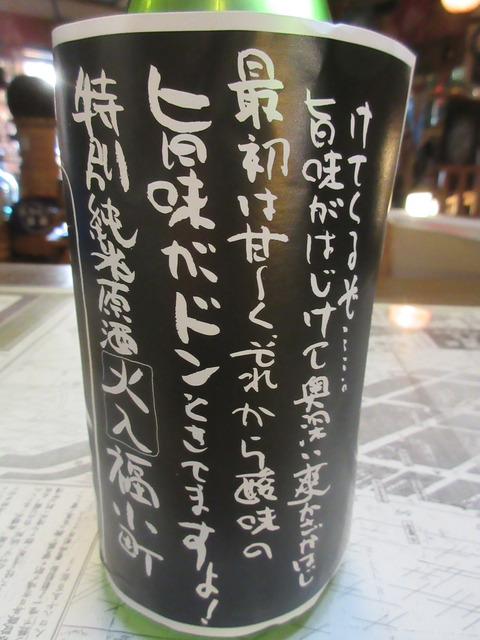 特別純米原酒火入福小町
旨味がドンときてますよ!
最初は甘〜くそれから酸味の
旨味がはじけて奥深い
けてくる……。